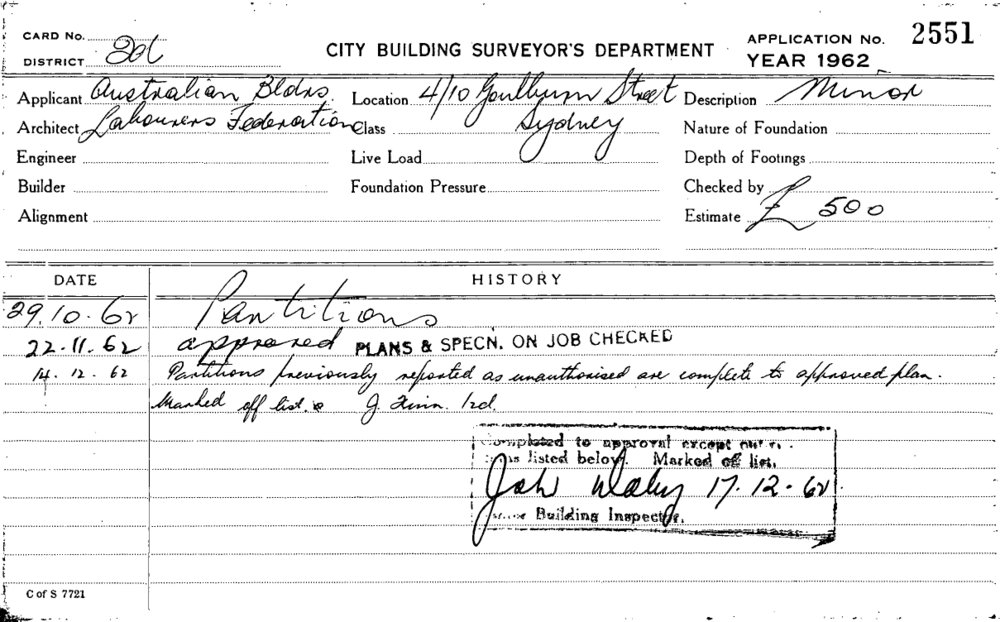 CARD No.
DISTRICT 2d
CITY BUILDING SURVEYOR'S DEPARTMENT
APPLICATION No. 2551
YEAR 1962
Applicant Australian Bldrs
Location 4/10 Goulburn Street
Description Minor
Architect Labourers Federation
Class Sydney
Nature of Foundation
Engineer
Live Load
Depth of Footings
Builder
Foundation Pressure
Checked by
Alignment
Estimate £ 500
DATE HISTORY
29.10.62 Partitions
22.11.62 approved PLANS & SPECN. ON JOB CHECKED
14.12.62 Partitions previously reported as unauthorised are complete to approved plan.
Marked off list. J.
Completed to approval except
listed below. Marked off list.
17.12.62
Building Inspector.
C of S 7721